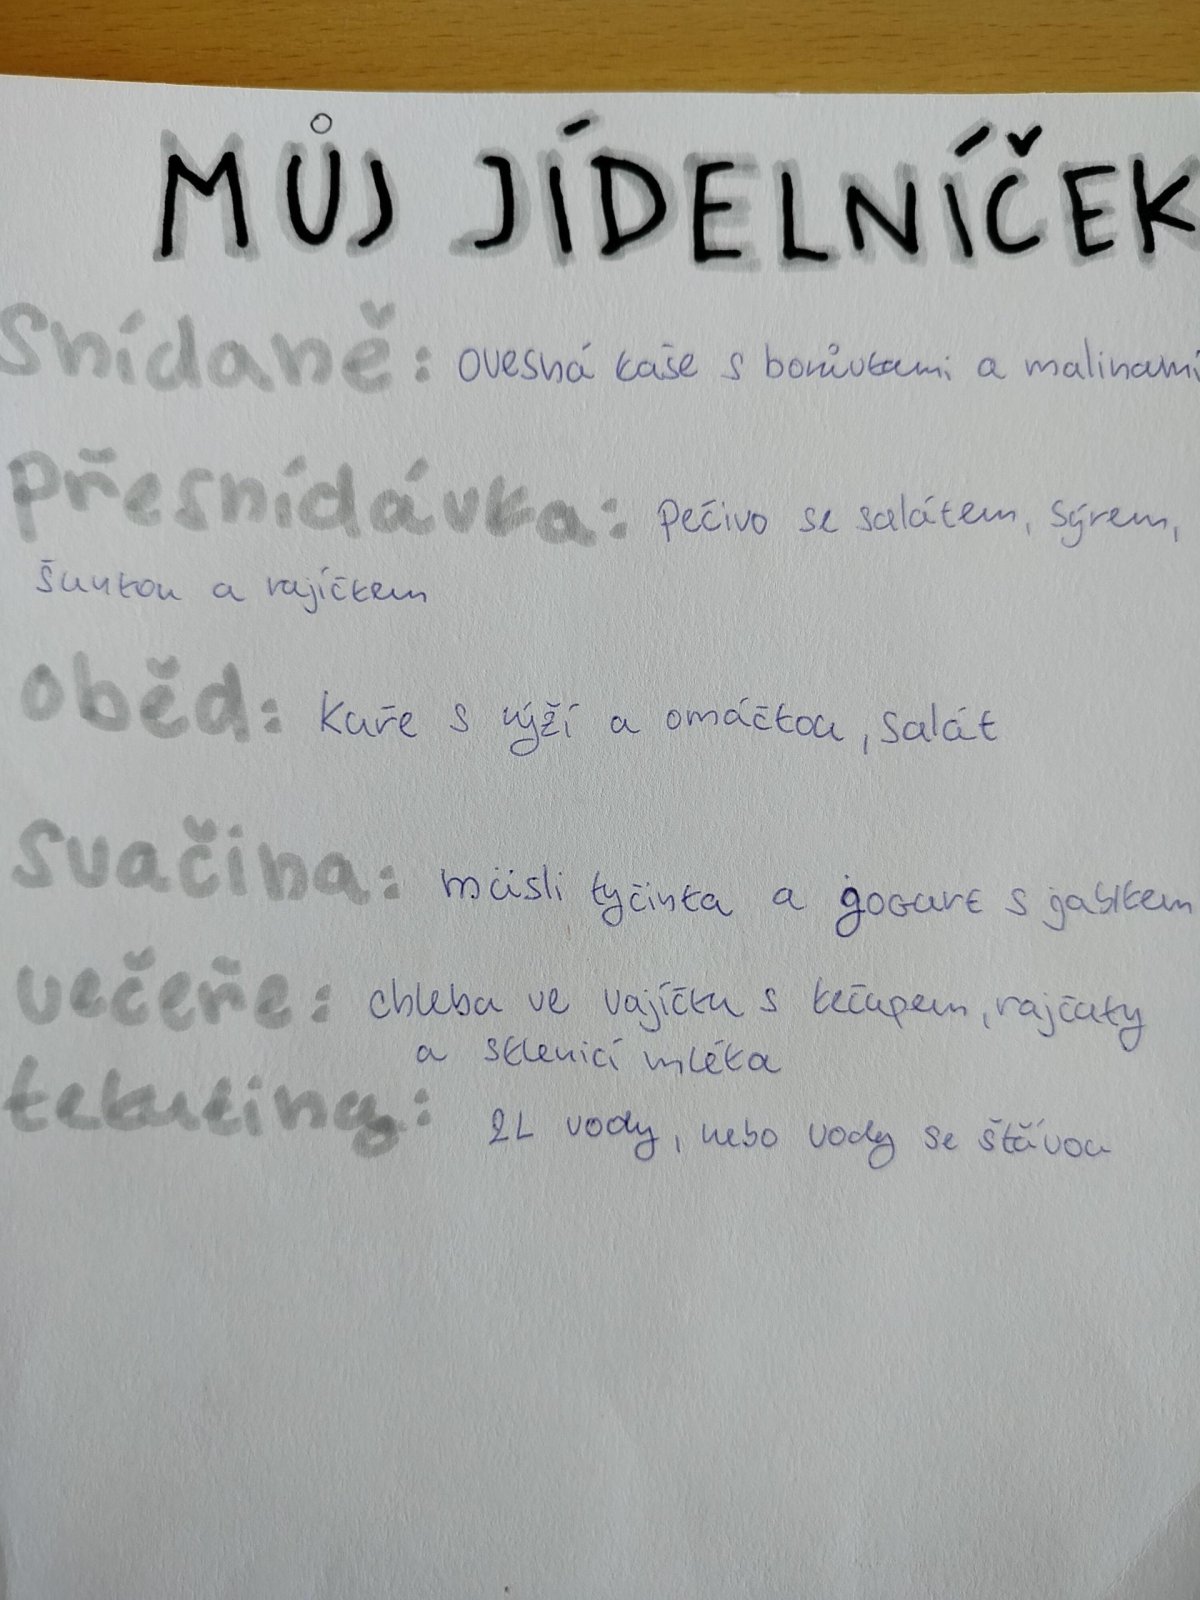 MŮJ JÍDELNÍČEK
Snídaně: ovesná kaše s borůvkami a malinami
přesnídávka: pečivo se salátem, sýrem,
šunkou a rajíčkem
oběd: Kuře s rýží a omáčkou, salát
svačina: müsli tyčinka a jogurt s jablkem
večeře: chleba ve vajíčku s kečupem, rajčaty
a sklenicí mléka
tekutiny: 2L vody, nebo vody se šťávou